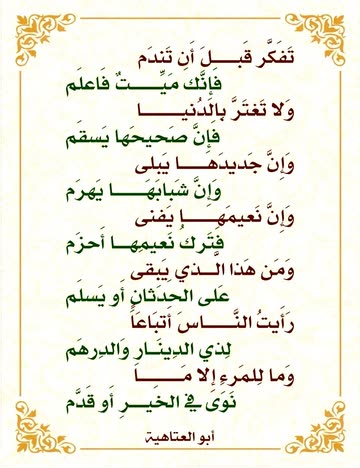 تَفَكَّر قَبـــلَ أَن تَندَم
فَإِنَّكَ مَيِّـــتٌ فَاعلَم
وَلا تَغتَرَّ بِالدُنيـــــا
فَإِنَّ صَحيحَها يَسقَم
وَإِنَّ جَديدَهـــا يَبلى
وَإِنَّ شَبابَهَـــا يَهرَم
وَإِنَّ نَعيمَهـــا يَفنى
فَتَركُ نَعيمِهـا أَحزَم
وَمَن هَذا الَّـذي يَبقى
عَلى الحِدَثانِ أَو يَسلَم
رَأَيتُ النَّـــاسَ أَتباعَاً
لِذي الدينَـارِ وَالدِرهَم
وَما لِلمَرءِ إِلا مَـــا
نَوَى في الخَيـرِ أَو قَدَّم
أبو العتاهية